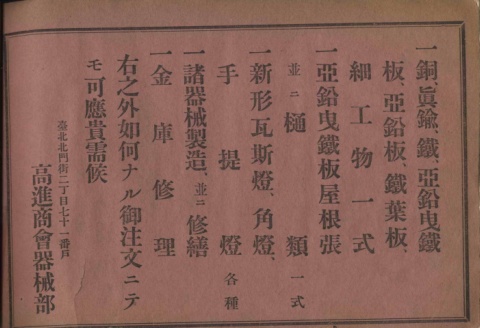 一銅、眞鍮、鐵、亞鉛曳鐵
板、亞鉛板、鐵葉板、
細工物一式
一亞鉛曳鐵板屋根張
並ニ樋類一式
一新形瓦斯燈、角燈、
手提燈各種
一諸器械製造、並ニ修繕
一金庫修理
右之外如何ナル御注文ニテ
モ可應貴需候
臺北北門街二丁目七十一番戶
高進商會器械部